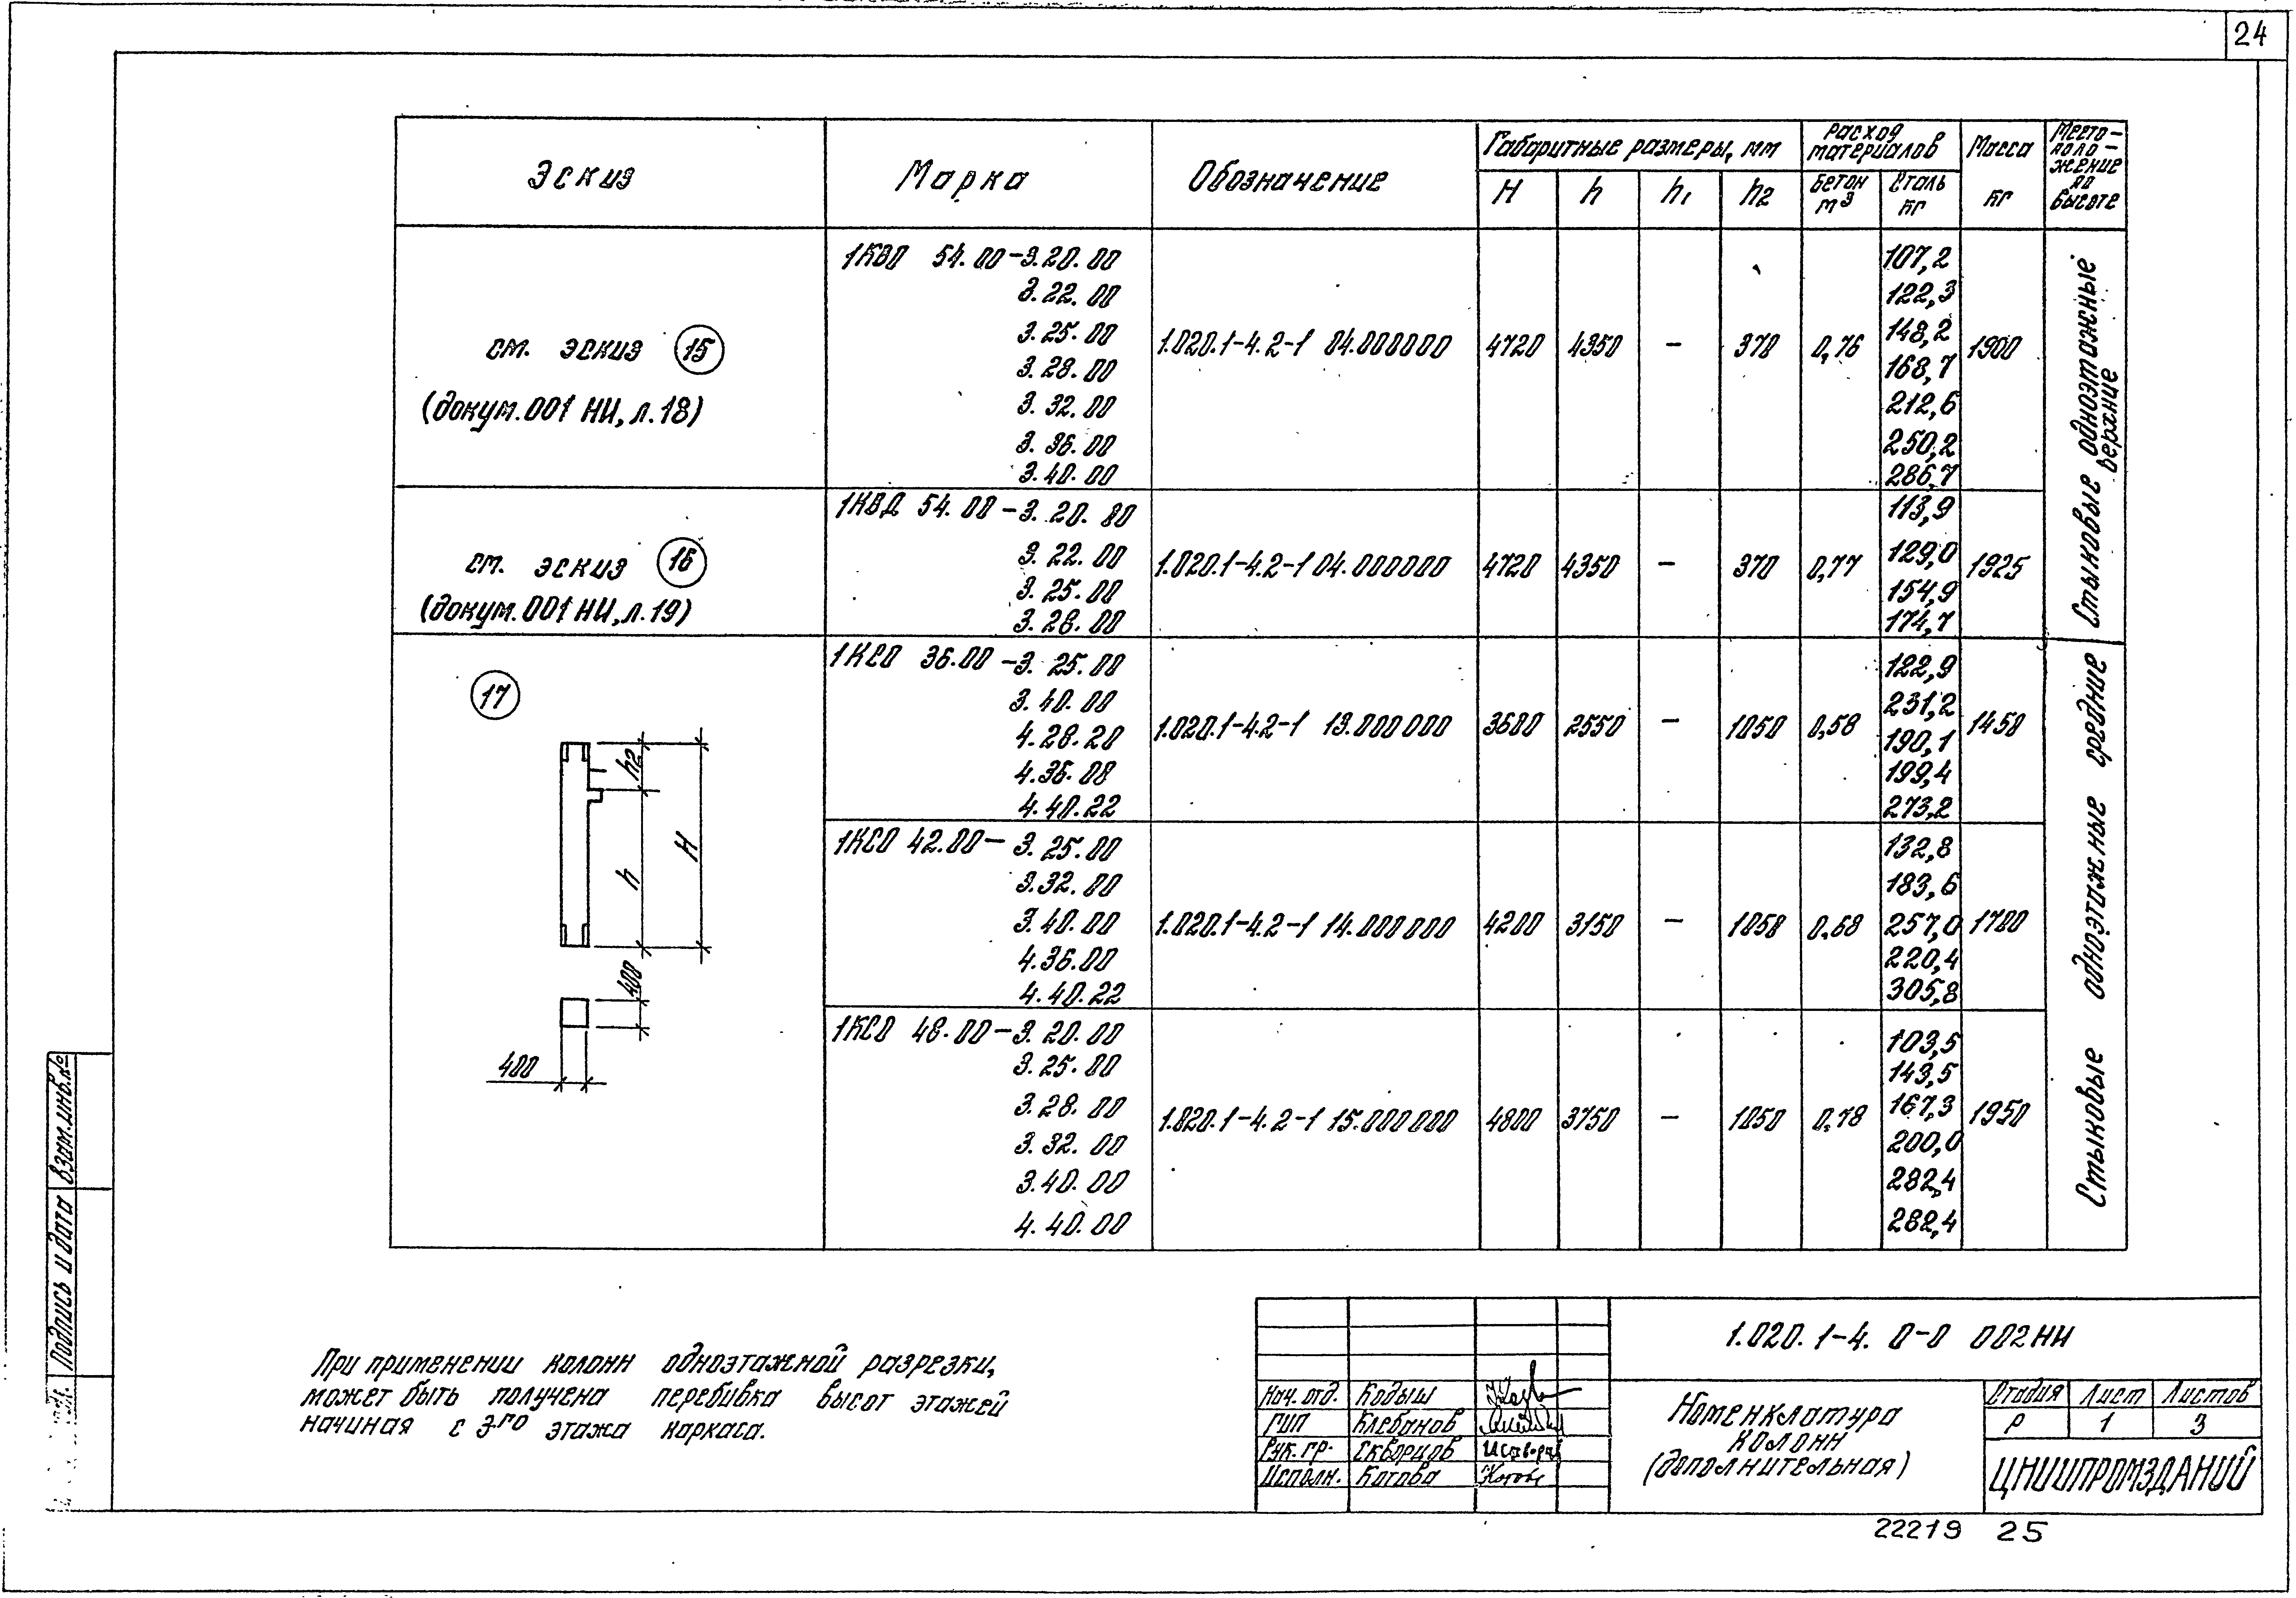 24
Эскиз
Марка
Обозначение
Габаритные размеры, мм
H
h
h1
h2
Расход материалов
Бетон м3
Сталь кг
Масса кг
Место-
поло-
жение
по
высоте
см. эскиз 15
(докум.001 НИ, л.18)
1КВО 54.00-3.20.00
3.22.00
3.25.00
3.28.00
3.32.00
3.36.00
3.40.00
1.020.1-4.2-1 04.000000
4720
4350
—
370
0,76
107,2
122,3
148,2
168,7
212,6
250,2
286,7
1900
Стыковые одноэтажные
верхние
см. эскиз 16
(докум.001 НИ, л.19)
1КВД 54.00-3.20.00
3.22.00
3.25.00
3.28.00
1.020.1-4.2-1 04.000000
4720
4350
—
370
0,77
113,9
129,0
154,9
174,7
1925
17
h2
h
H
400
400
1КСО 36.00-3.25.00
3.40.00
4.28.20
4.36.00
4.40.22
1.020.1-4.2-1 13.000000
3600
2550
—
1050
0,58
122,9
231,2
190,1
199,4
273,2
1450
1КСО 42.00-3.25.00
3.32.00
3.40.00
4.36.00
4.40.22
1.020.1-4.2-1 14.000000
4200
3150
—
1050
0,68
132,8
183,6
257,0
220,4
305,8
1700
1КСО 48.00-3.20.00
3.25.00
3.28.00
3.32.00
3.40.00
4.40.00
1.020.1-4.2-1 15.000000
4800
3750
—
1050
0,78
103,5
143,5
167,3
200,0
282,4
282,4
1950
Стыковые одноэтажные средние
При применении колонн одноэтажной разрезки,
может быть получена перебивка высот этажей
начиная с 3го этажа каркаса.
Взам.инв.№
Подпись и дата
1.020.1-4. 0-0 002НИ
Нач. отд. Кодыш
ГИП Клебанов
Рук. гр. Скворцов
Исполн. Котова
Номенклатура
колонн
(дополнительная)
Стадия Лист Листов
Р 1 3
ЦНИИПРОМЗДАНИЙ
22219 25